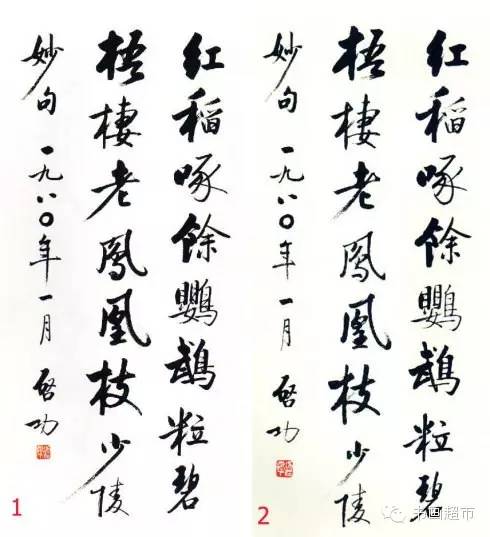 红稻啄餘鸚鵡粒碧
梧棲老鳳凰枝少陵
妙句 一九八〇年一月 啓功
1
红稻啄餘鸚鵡粒碧
梧棲老鳳凰枝少陵
妙句 一九八〇年一月 啓功
2
书画超市